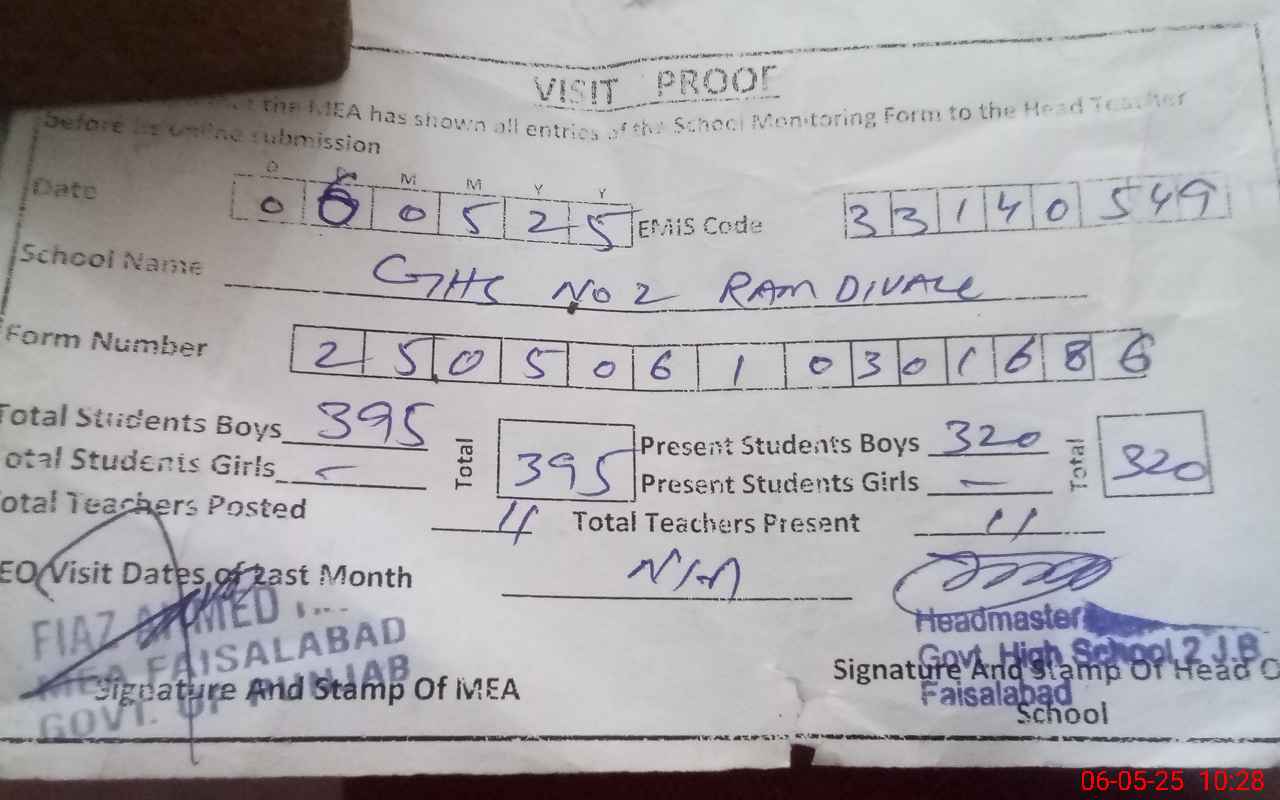 VISIT PROOF
the MEA has shown all entries of the School Monitoring Form to the Head Teacher
before its online submission
D D M M Y Y
Date 0 6 0 5 2 5 EMIS Code 3 3 1 4 0 5 4 9
School Name GHS No 2 RAM DIVALI
Form Number 2 5 0 5 0 6 1 0 3 0 1 6 8 6
Total Students Boys 395 Total 395 Present Students Boys 320 Total 320
otal Students Girls - Present Students Girls -
otal Teachers Posted Total Teachers Present 11
EO Visit Dates of Last Month N/A
FIAZ AHMED
MEA FAISALABAD
GOVT. OF PUNJAB
Signature And Stamp Of MEA
Headmaster
Govt. High School 2 J.B
Faisalabad
Signature And Stamp Of Head O
School
06-05-25 10:28